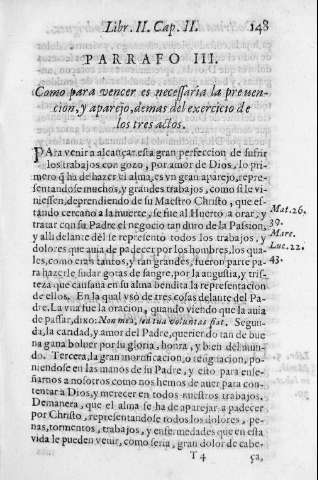 Libr. II. Cap. II. 148
PARRAFO III.
Como para vencer es neceſſaria la preuen-
cion, y aparejo, demas del exercicio de
los tres actos.
PAra venir a alcançar eſta gran perfeccion de ſufrir
los trabajos con gozo, por amor de Dios, lo pri-
mero q̃ ha de hazer el alma, es vn gran aparejo, repre-
ſentandoſe muchos, y grandes trabajos, como ſi le vi-
nieſſen, deprendiendo de ſu Maestro Chriſto, que eſ-
tando cercano a la muerte, ſe fue al Huerto a orar, y
tratar con ſu Padre el negocio tan duro de la Paſsion,
y alli delante dèl ſe repreſentò todos los trabajos, y
dolores que auia de padecer por los hombres, los qua-
les, como eran tantos, y tan grandes, fueron parte pa-
ra hazerle ſudar gotas de ſangre, por la auguſtia, y triſ-
teza que cauſaua en ſu alma bendita la repreſentacion
de ellos. En la qual vsò de tres coſas delante del Pa-
dre. La vna fue la oracion, quando viendo que la auia
de paſſar, dixo: Non mea, ſed tua voluntas fiat. Segun-
da, la caridad, y amor del Padre, queriendo tan de bue
na gana boluer por ſu gloria, honra, y bien del mun-
do. Tercera, la gran mortificacion, o reſignacion, po-
niendoſe en las manos de ſu Padre, y eſto para enſe-
ñarnos a noſotros como nos hemos de auer para con-
tentar a Dios, y merecer en todos nueſtros trabajos.
Demanera, que el alma ſe ha de aparejar a padecer
por Chriſto, repreſentandoſe todos los dolores, pe-
nas, tormentos, trabajos, y enfermedades que en eſta
vida le pueden venir, como ſeria, gran dolor de cabe-
T 4 ça,
Mat. 26.
39.
Marc.
Luc. 22.
43.